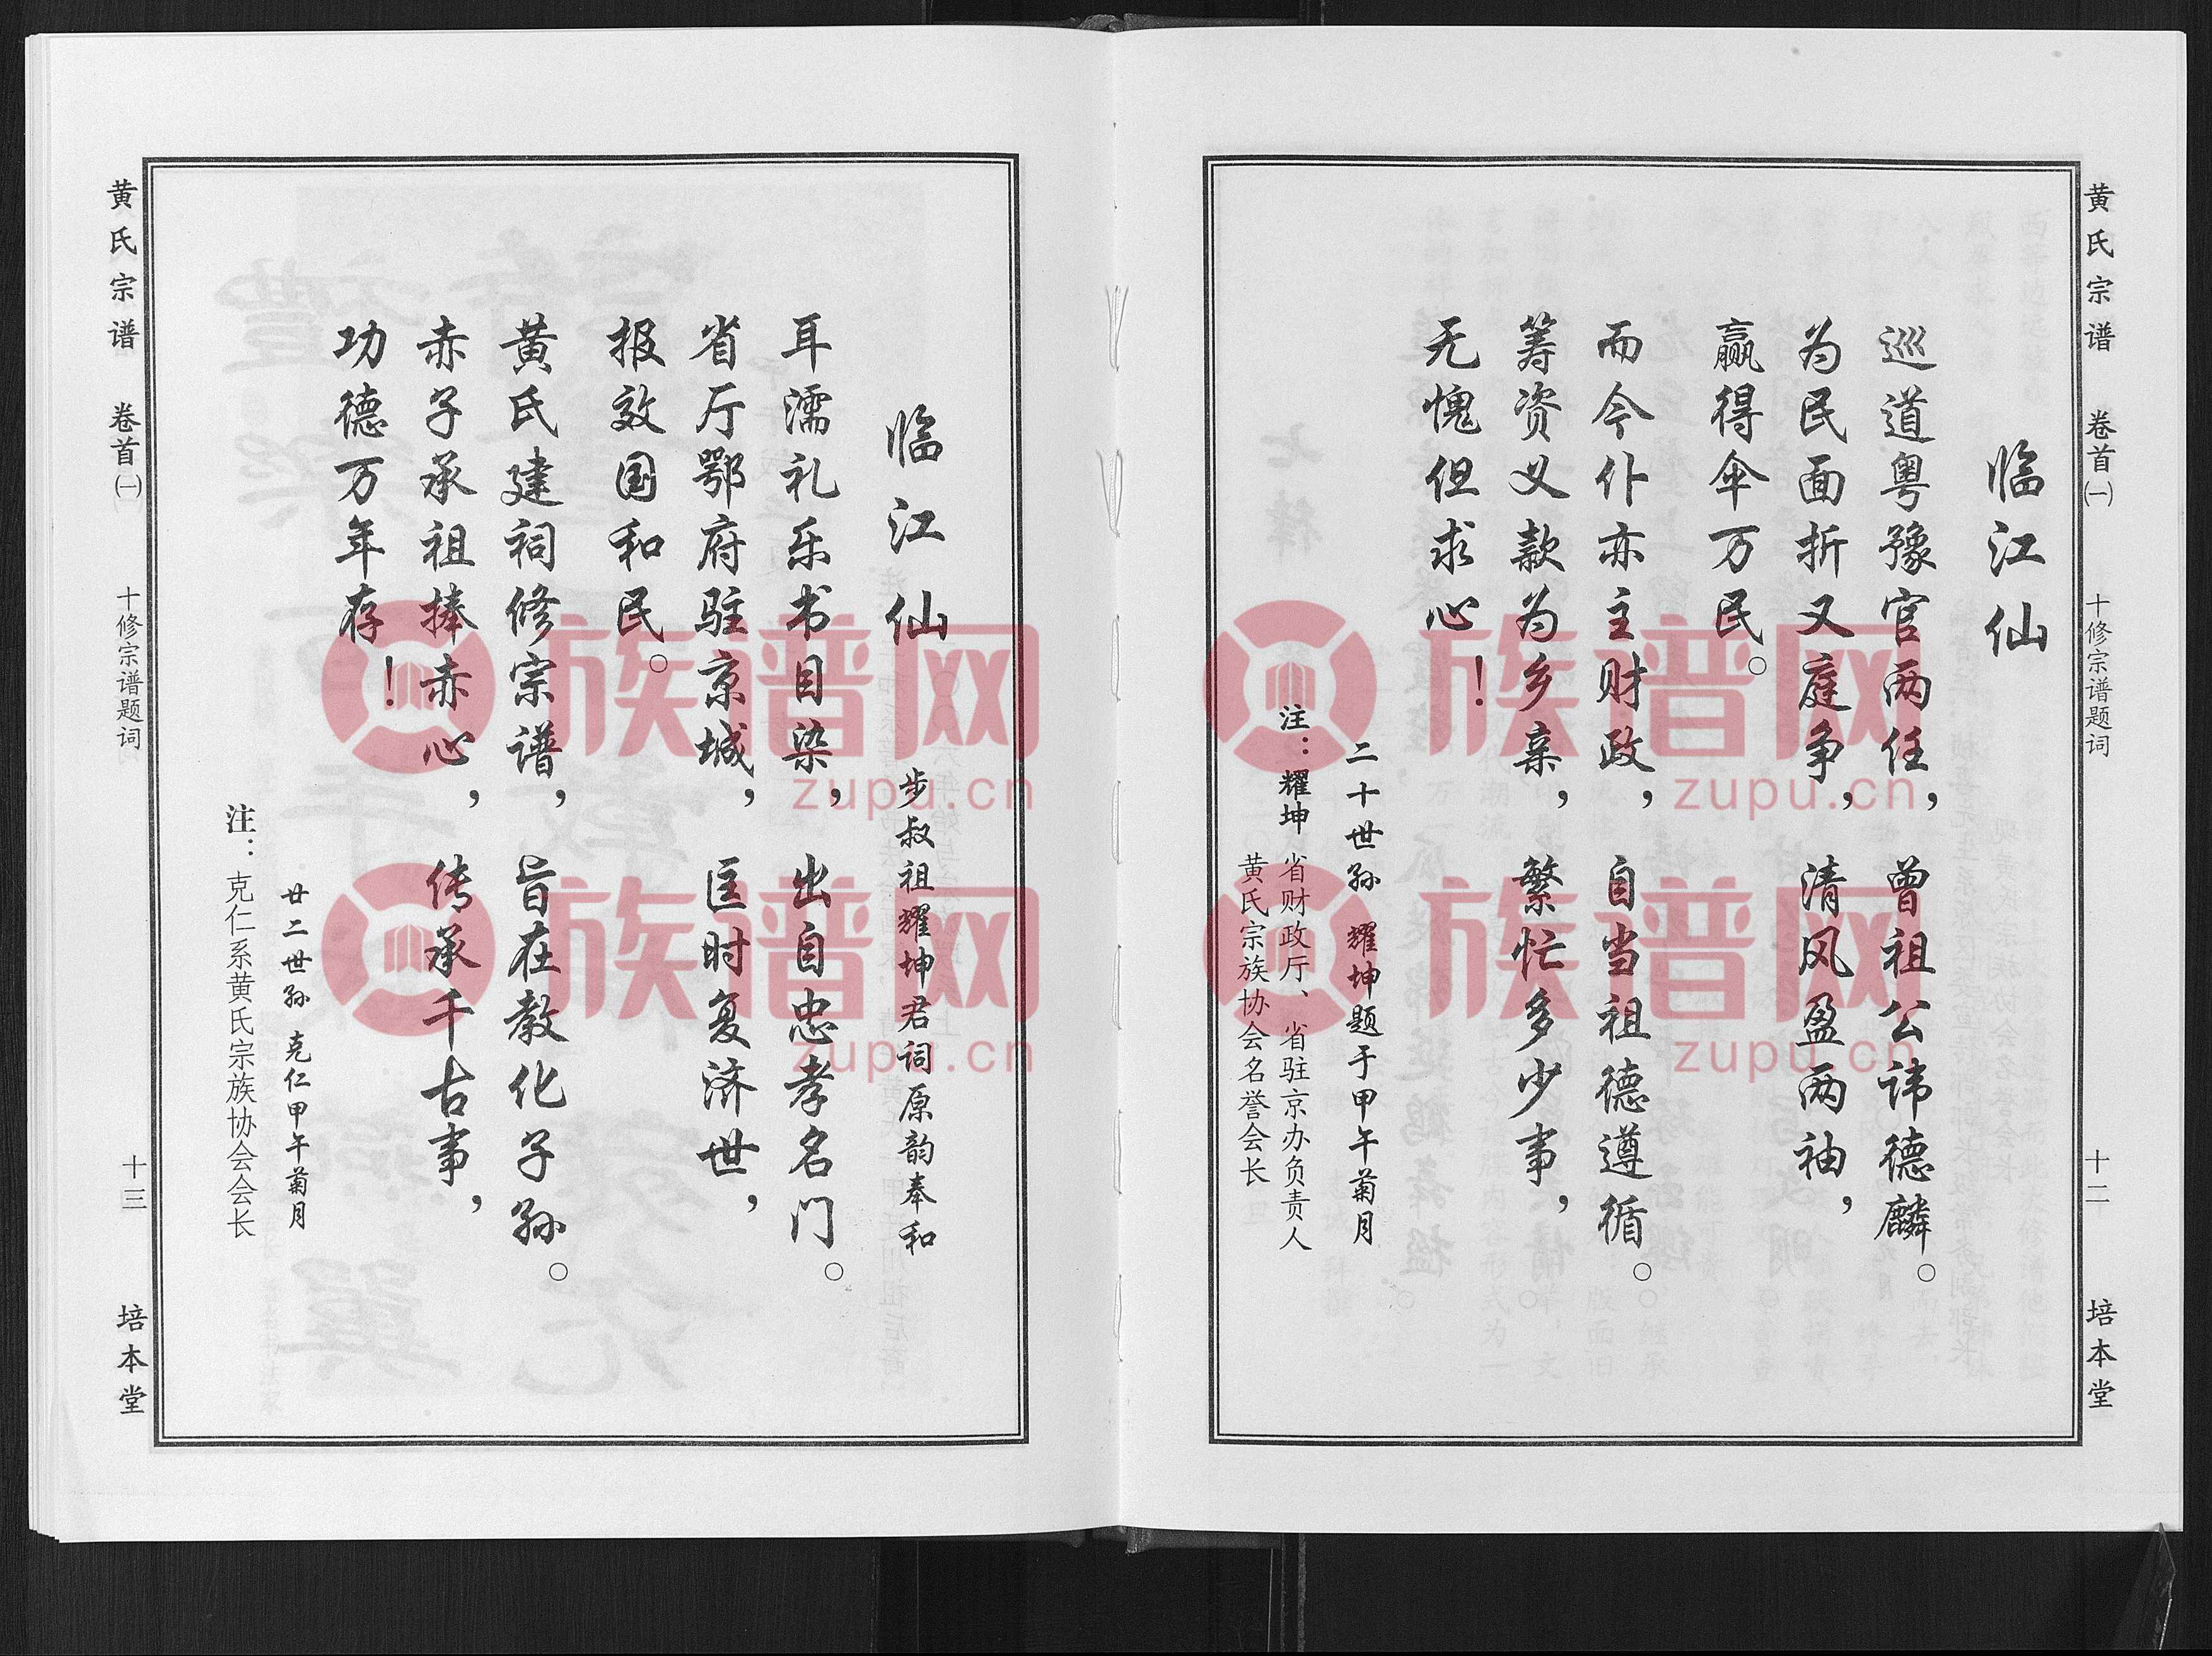 黄氏宗谱 卷首㈠ 十修宗谱题词 十二 培本堂
临江仙
巡道粤豫官两任，曾祖公讳德麟。
为民面折又庭争，清风盈两袖，
赢得伞万民。
而今仆亦主财政，自当祖德遵循。
筹资义款为乡亲，繁忙多少事，
无愧但求心！
二十世孙 耀坤题于甲午菊月
注：耀坤 省财政厅、省驻京办负责人
黄氏宗族协会名誉会长
临江仙 步叔祖耀坤君词原韵奉和
耳濡礼乐书目染，出自忠孝名门。
省厅鄂府驻京城，匡时复济世，
报效国和民。
黄氏建祠修宗谱，旨在教化子孙。
赤子承祖捧赤心，传承千古事，
功德万年存！
廿二世孙 克仁甲午菊月
注：克仁系黄氏宗族协会会长
黄氏宗谱 卷首㈠ 十修宗谱题词 十三 培本堂
族谱网
zupu.cn
族谱网
zupu.cn
族谱网
zupu.cn
族谱网
zupu.cn